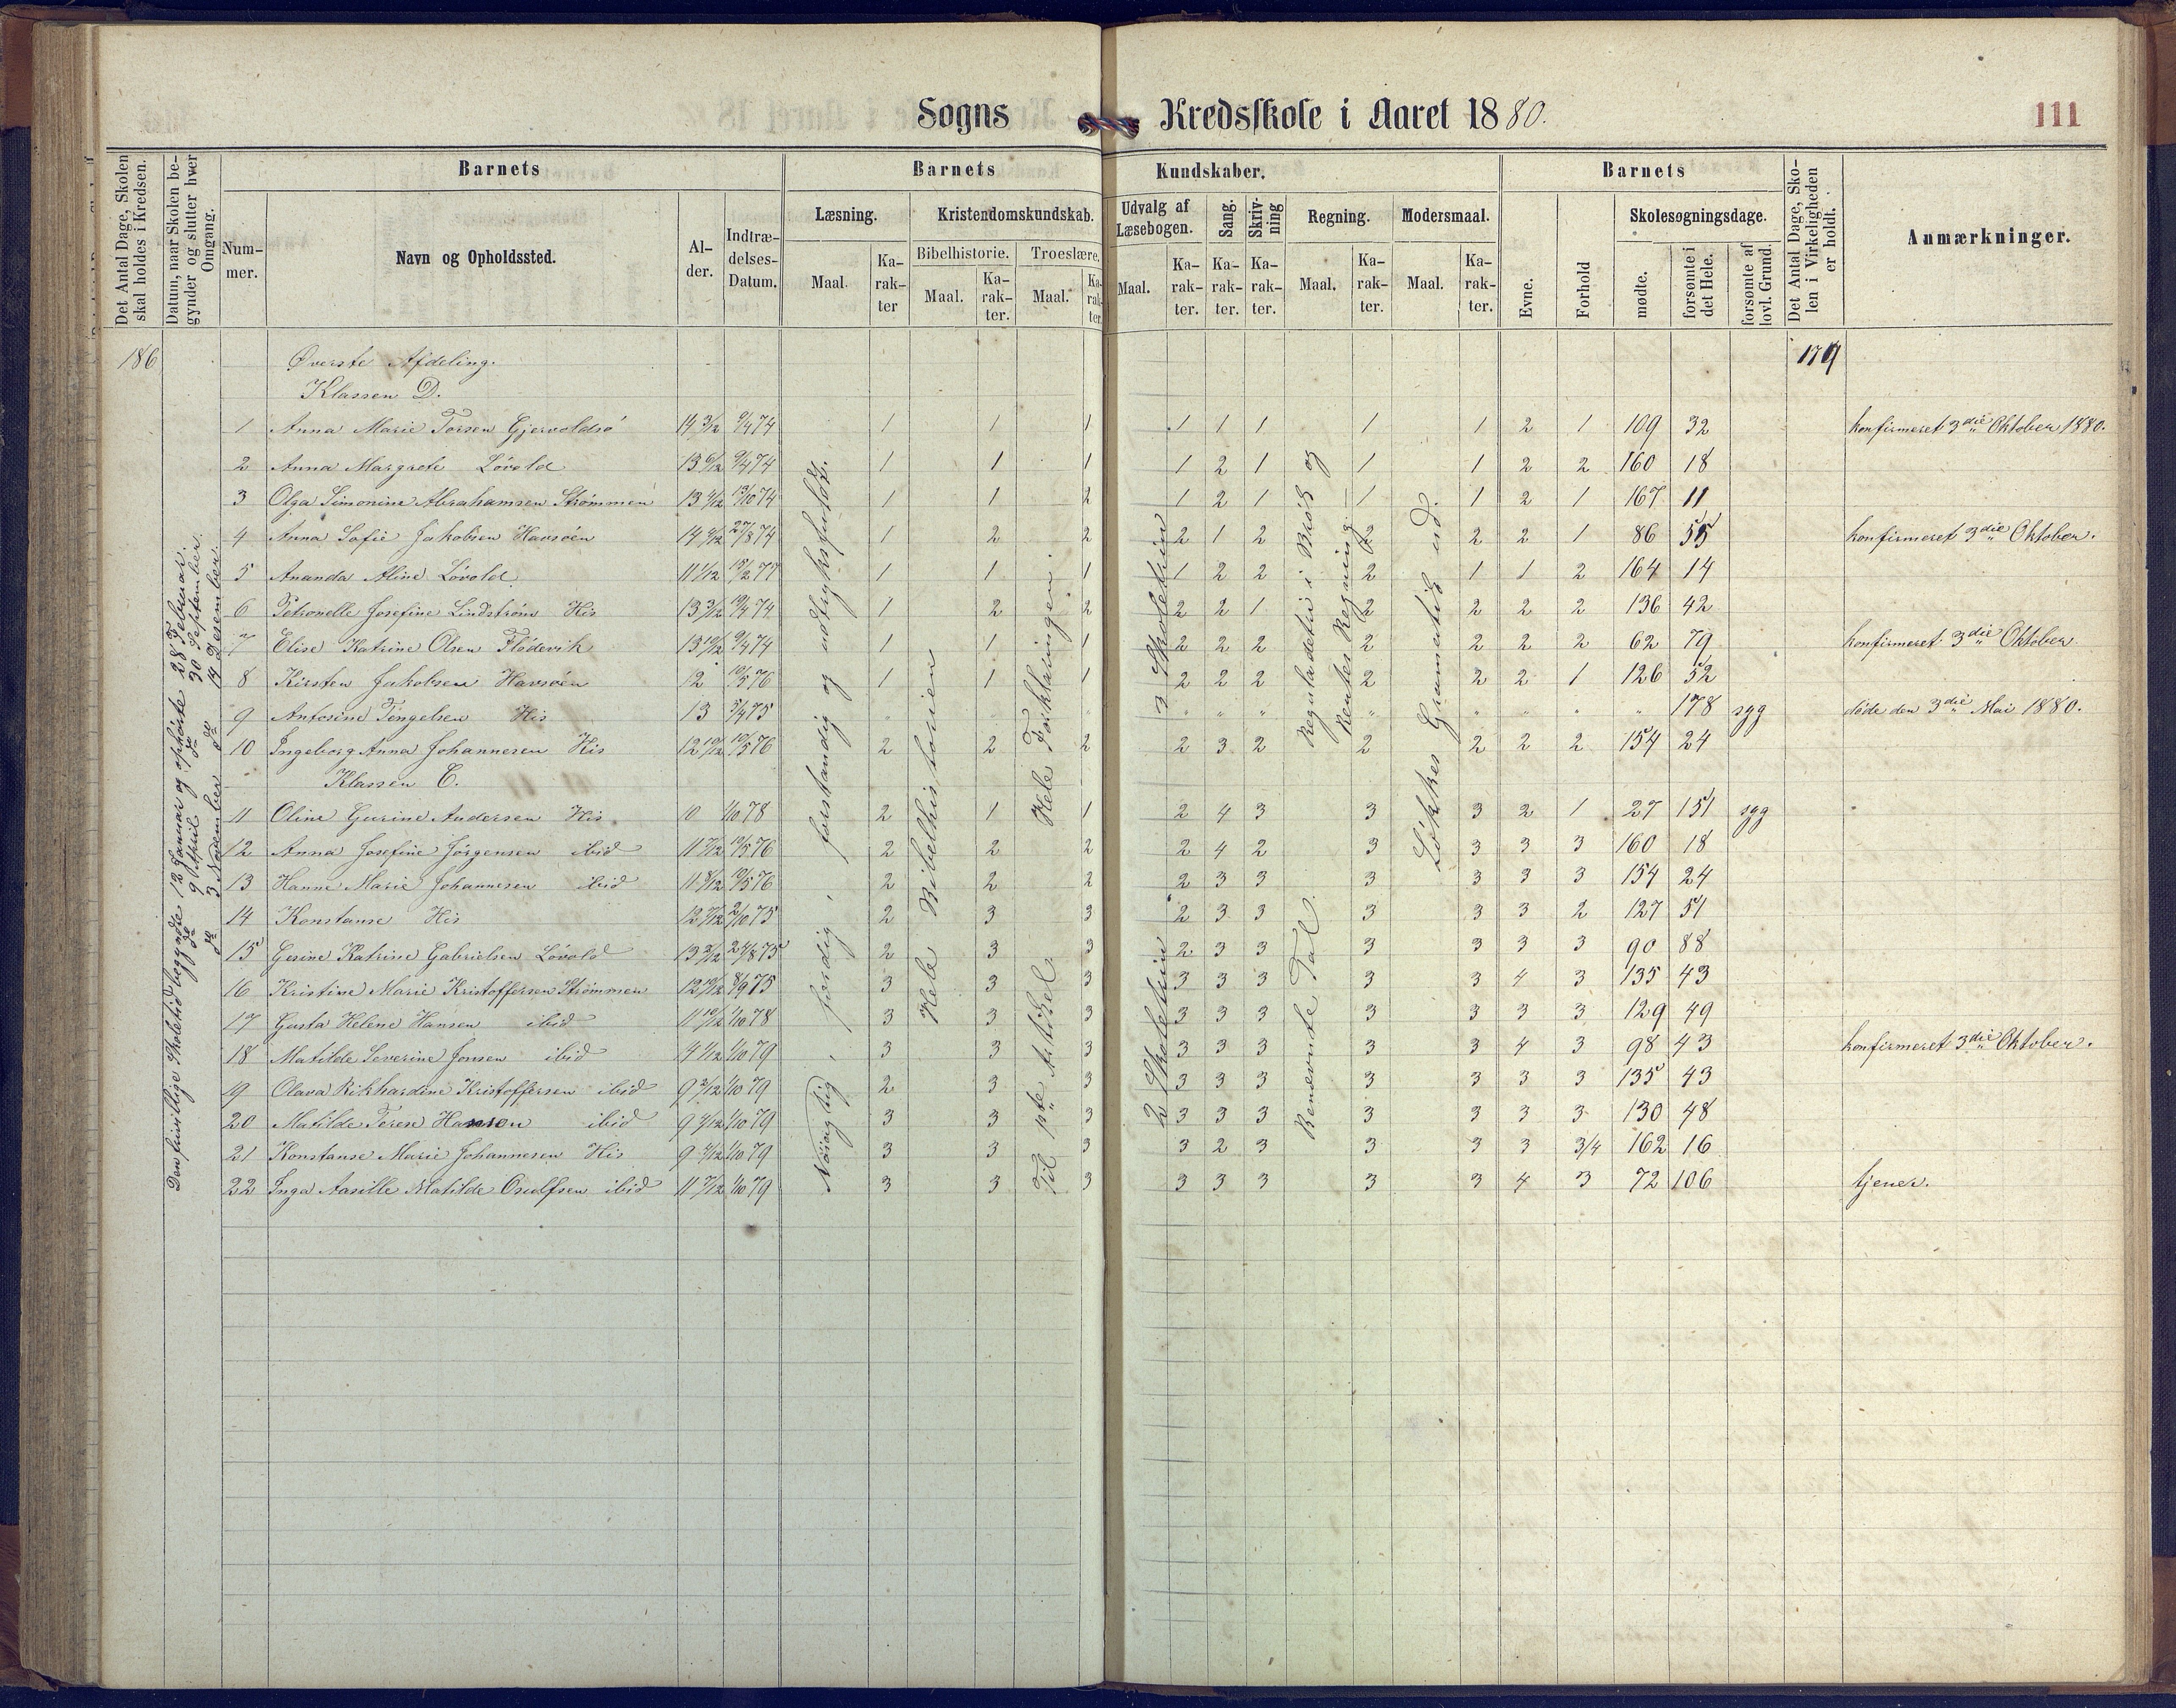 Sogns Kredsskole i Aaret 1880. 111
Det Antal Dage, Skolen skal holdes i Kredsen.
Datum, naar Skolen begynder og slutter hver Omgang.
Barnets Barnets Kundskaber. Barnets
Det Antal Dage, Skolen i Virkeligheden er holdt.
Anmærkninger.
Nummer. Navn og Opholdssted. Alder. Indtrædelses-Datum.
Læsning. Kristendomskundskab. Udvalg af Læsebogen. Sang. Skrivning Regning. Modersmaal. Evne. Forhold Skolesøgningsdage.
Bibelhistorie. Troeslære.
Maal. Karakter Maal. Karakter. Maal. Karakter. Maal. Karakter. Karakter. Karakter. Maal. Karakter. Maal. Karakter. mødte. forsømte i det Hele. forsømte af lovl. Grund.
186 Øverste Afdeling. 179
Klassen D.
1 Anna Marie Torsen Gjervoldsö 14 3/12 9/4 74 1 1 1 1 1 1 1 1 2 1 109 32 konfirmeret 3die Oktober 1880.
2 Anna Margrete Lövold 13 6/12 9/4 74 1 1 1 1 2 1 1 1 2 2 160 18
3 Olga Simonine Abrahamsen Strömmen 13 4/12 13/10 74 1 1 2 1 2 1 1 1 2 1 167 11
4 Anna Sofie Jakobsen Havsöen 14 4/12 27/8 74 1 2 2 2 1 2 2 2 2 1 86 55 konfirmeret 3die Oktober.
5 Ananda Aline Lövold 11 1/12 15/2 77 1 1 1 1 2 2 2 1 1 2 164 14
6 Petronelle Josefine Lindström His 13 3/12 10/4 74 1 2 2 2 2 1 2 2 2 2 136 42
7 Elise Katrine Olsen Flödevik 13 10/12 9/4 74 1 1 1 2 2 2 2 2 2 2 62 79 konfirmeret 3die Oktober
8 Kirsten Jakobsen Havsöen 12 10/5 76 1 1 1 2 2 2 2 2 2 1 126 52
9 Antosine Tengelsen His 13 5/4 75 " " " " " " " " " " " 178 syg döde den 3die Mai 1880.
10 Ingeborg Anna Johannesen His 12 10/12 10/5 76 2 2 2 2 3 2 2 2 2 2 154 24
Klassen C.
11 Oline Gurine Andersen His 10 1/10 78 2 1 1 2 4 3 3 3 2 1 27 151 syg
12 Anna Josefine Jörgensen ibid 11 7/12 10/5 76 2 2 2 2 4 2 3 3 3 3 160 18
13 Hanne Marie Johannesen ibid 11 8/12 10/5 76 2 2 2 2 3 3 3 3 3 3 154 24
14 Konstanse His 12 7/12 2/10 75 2 3 3 2 3 3 3 3 3 2 127 51
15 Gesine Katrine Gabrielsen Lövold 13 2/12 24/8 75 2 3 3 2 3 3 3 3 3 3 90 88
16 Kristine Marie Kristoffersen Strömmen 12 10/12 8/9 75 3 3 3 3 3 3 3 3 4 3 135 43
17 Gusta Helene Hansen ibid 11 10/12 1/10 78 3 3 3 3 3 3 3 3 3 3 129 49
18 Matilde Severine Jonsen ibid 14 1/12 1/10 79 3 3 3 3 3 3 3 3 4 3 98 43 konfirmeret 3die Oktober.
19 Olava Rikhardine Kristoffersen ibid 9 2/12 1/10 79 2 3 3 3 3 3 3 3 3 3 135 43
20 Matilde Terese Hansen ibid 9 4/12 1/10 79 3 3 3 3 3 3 3 3 3 3 130 48
21 Konstanse Marie Johannesen His 9 4/12 1/10 79 3 3 3 3 2 3 3 3 3 3/4 162 16
22 Inga Aasille Matilde Osulfsen ibid 11 7/12 1/10 79 3 3 3 3 3 3 3 3 4 3 72 106 tjener.
Den frivillige Skoletid begyndte 12 Januar og ophörte 28 Februar.
do 9 April do 30 September.
do 3 November do 14 Desember.
Nöiagtig, færdig, forstandig og udtryksfuldt.
Hele Bibelhistorien
Hele Forklaringen.
Til 1ste Artikel
3 Skoletrin
2 Skoletrin
Reguladetri i Brök og
Rentes Regning.
Benævnte Tal.
Lökkes Gramatik ud.